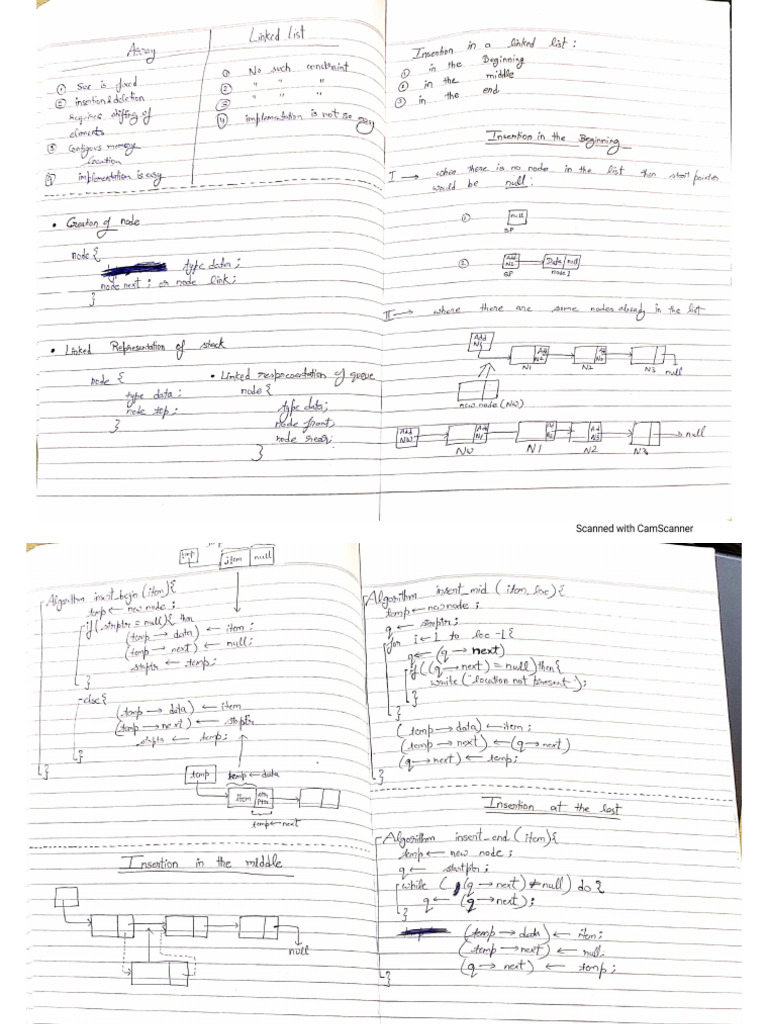 Array
① Size is fixed
② insertion & deletion
requires shifting of
elements
③ Contiguous memory
location
④ implementation is easy
Linked List
① No such constraint
② " " "
③ " " "
④ implementation is not so easy
• Creation of node
node {
type data ;
node next ; or node link ;
}
• Linked Representation of stack
node {
type data ;
node top ;
}
• Linked representation of queue
node {
type data ;
node front ;
node rear ;
}
Insertion in a linked list :
① in the Beginning
② in the middle
③ in the end
Insertion in the Beginning
I → when there is no node in the list then start pointer
would be null :
① null
SP
② Add N1 Data null
SP node 1
II → where there are some nodes already in the list
Add N1
N1 N2 N3 null
new node (NW)
Add NW Add N1 Add N3 null
NW N1 N2 N3
Scanned with CamScanner
temp item null
Algorithm insert_begin (item) {
temp ← new node ;
if (strptr = null) { then
(temp → data) ← item ;
(temp → next) ← null ;
strptr ← temp ;
}
else {
(temp → data) ← item
(temp → next) ← strptr
strptr ← temp ;
}
}
temp temp ← data
item
temp ← next
Insertion in the middle
null
Algorithm insert_mid (item, loc) {
temp ← new node ;
q ← strptr ;
for i ← 1 to loc -1 {
q ← (q → next)
if ((q → next) = null) then {
write ("location not present") ;
}
}
(temp → data) ← item ;
(temp → next) ← (q → next)
(q → next) ← temp ;
}
Insertion at the last
Algorithm insert_end (item) {
temp ← new node ;
q ← startptr ;
while ( (q → next) ≠ null) do {
q ← (q → next) ;
}
(temp → data) ← item ;
(temp → next) ← null ;
(q → next) ← temp ;
}